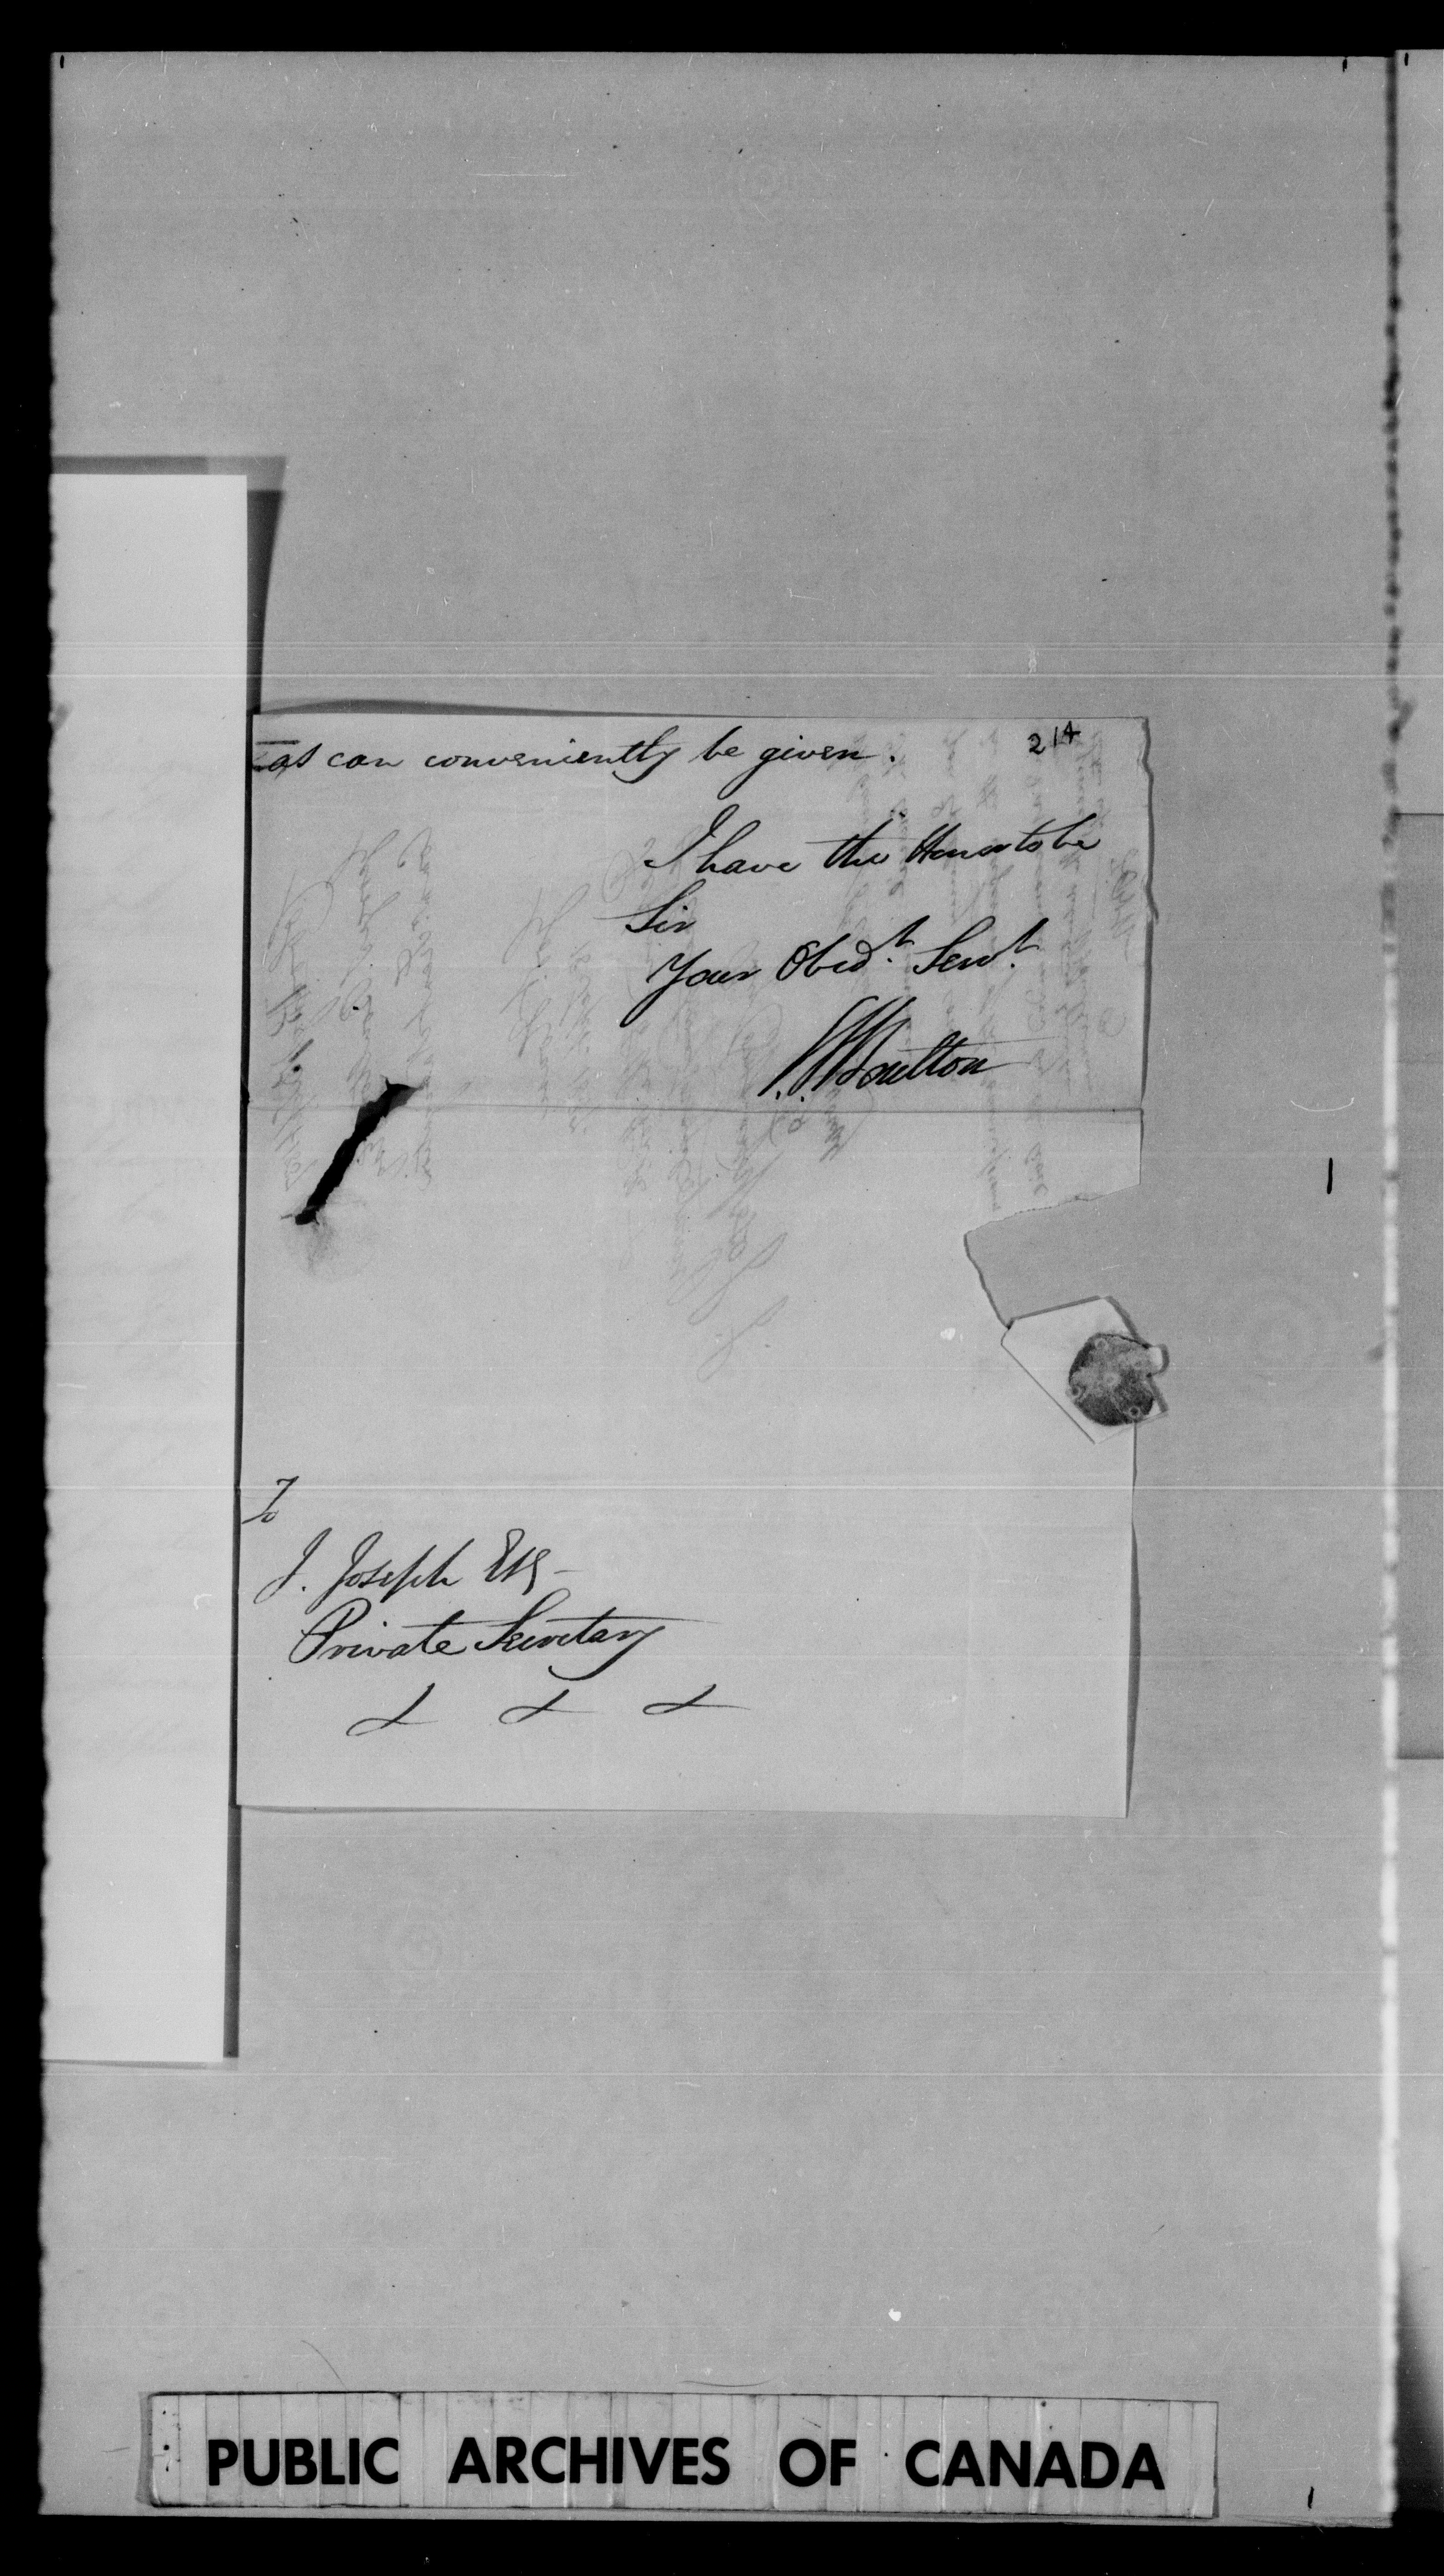 214
as can conveniently be given.
I have the Honor to be
Sir
Your Obedt. Servt.
Boulton
To
J. Joseph Esq
Private Secretary
PUBLIC ARCHIVES OF CANADA